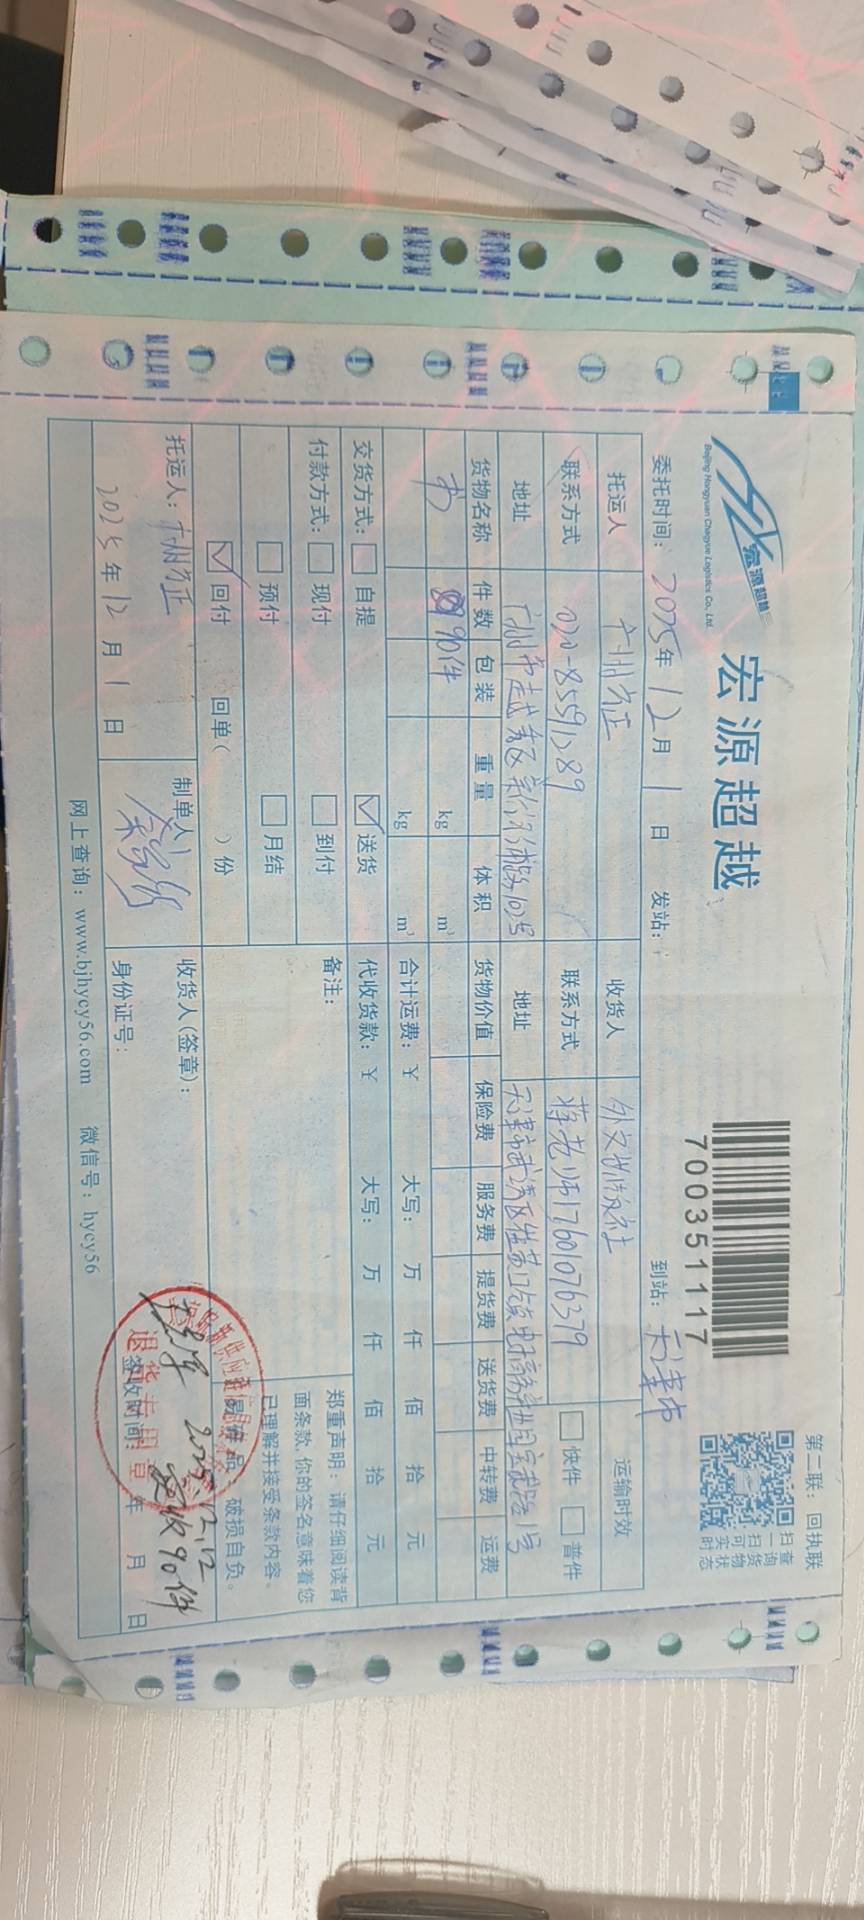 宏源超越
Beijing Hongyuan Chaoyue Logistics Co., Ltd.
宏源超越
7003511117
第二联：回执联
扫一扫可查询货物实时状态
委托时间：2025年12月1日 发站： 到站：天津市
托运人 广州方正 收货人 外文出版社 运输时效
联系方式 020-85591289 联系方式 蒋老师17601076379 快件 普件
地址 广州市越秀区 102号 地址 天津市武清区崔黄口镇电商产业园宏 1号
货物名称 件数 包装 重量 体积 货物价值 保险费 服务费 提货费 送货费 中转费 运费
书 90件 kg m³
kg m³ 合计运费：¥ 大写： 万 仟 佰 拾 元
交货方式： 自提 送货 代收货款：¥ 大写： 万 仟 佰 拾 元
付款方式： 现付 到付 备注：
预付 月结
回付 回单( )份
郑重声明：请仔细阅读背
面条款，你的签名意味着您
已理解并接受条款内容。
易碎品，破损自负。
托运人：广州方正 制单人： 收货人(签章)：
2025年12月1日 身份证号： 签收时间： 年 月 日
2025.12.12
实收90件
退货专用章
网上查询：www.bjhycy56.com 微信号：hycy56